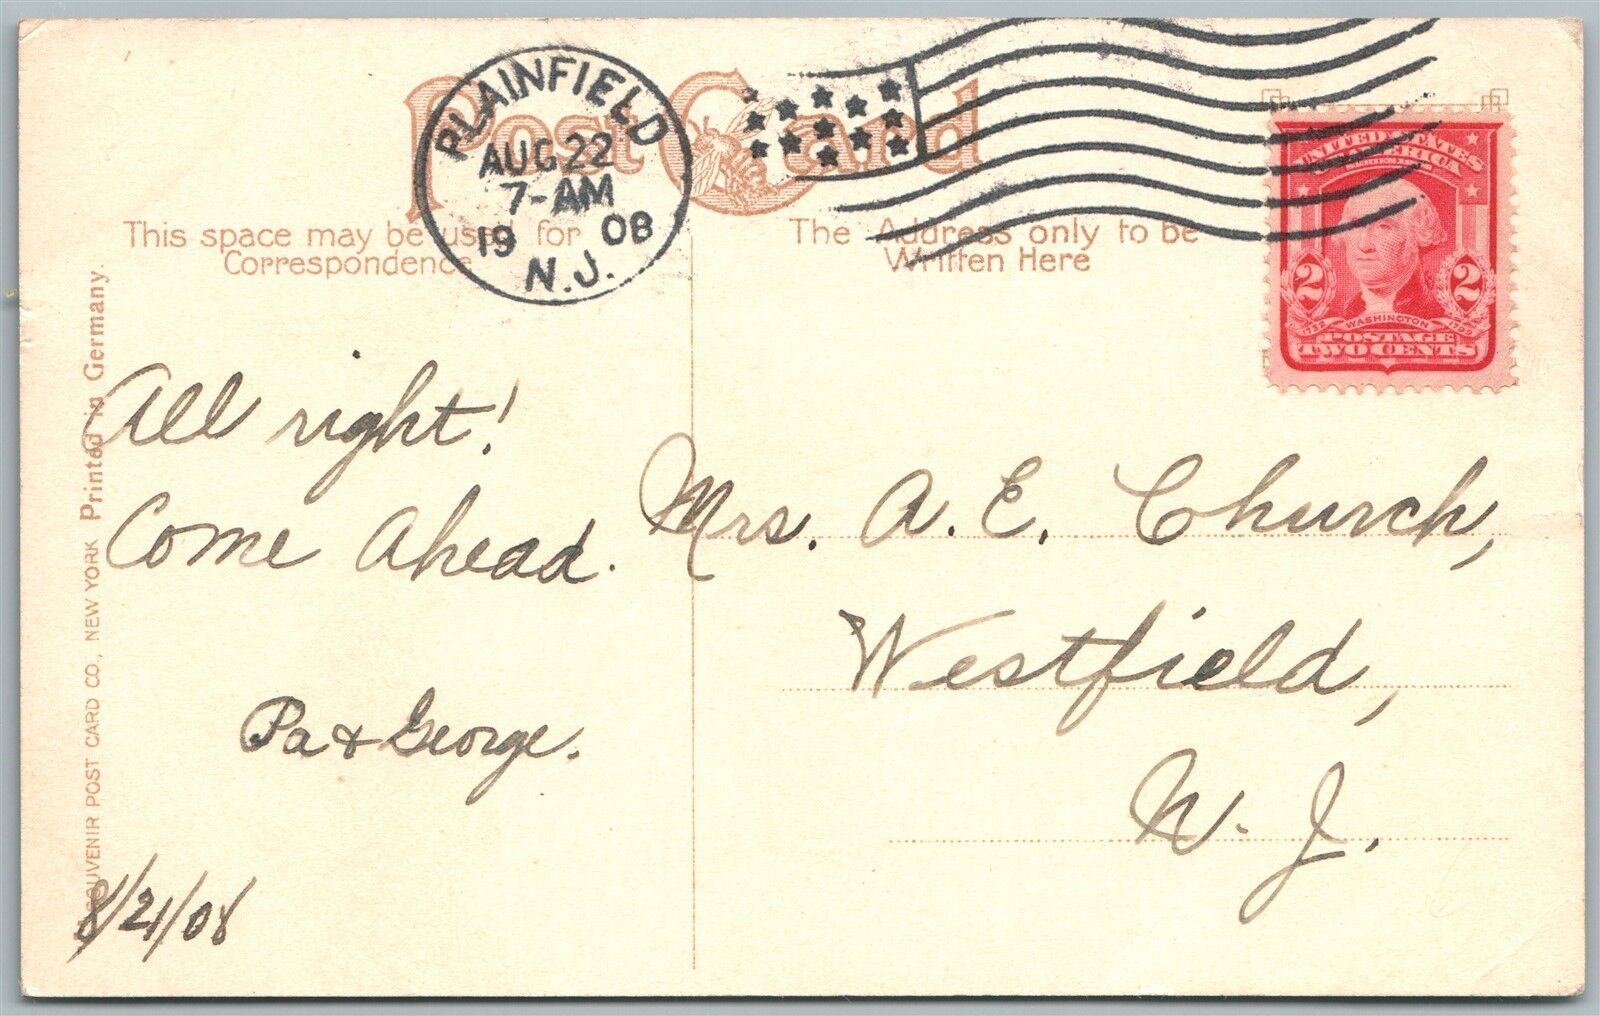 Post Card
PLAINFIELD
AUG 22
7-AM
19 08
N.J.
This space may be used for
Correspondence
The Address only to be
Written Here
UNITED STATES
2 2
1732 WASHINGTON 1799
POSTAGE
TWO CENTS
SOUVENIR POST CARD CO., NEW YORK Printed in Germany.
All right!
Come Ahead.
Pa & George.
8/21/08
Mrs. A. E. Church,
Westfield,
N. J.